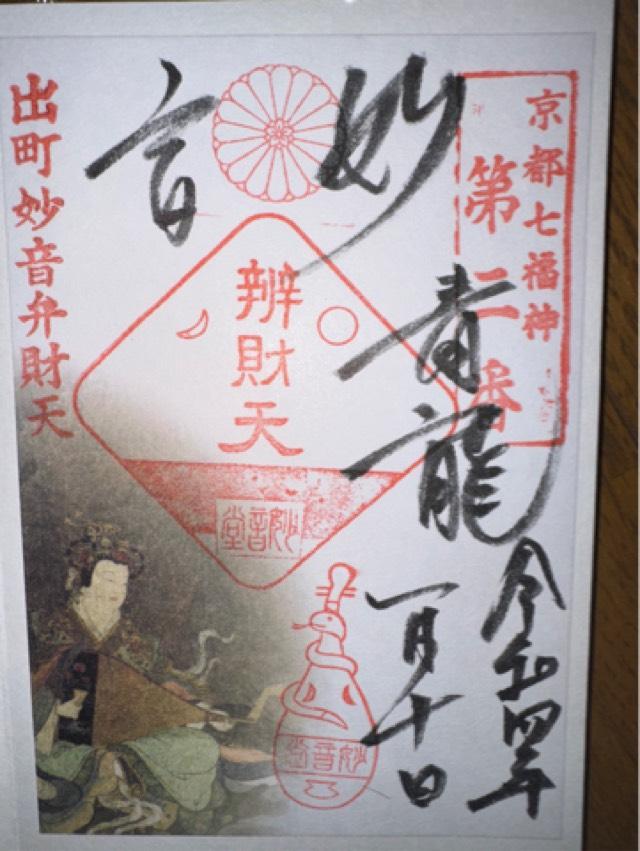 京都七福神
第二番
妙音
青龍
令和四年
一月十日
辨財天
妙音堂
妙音堂
出町妙音弁財天